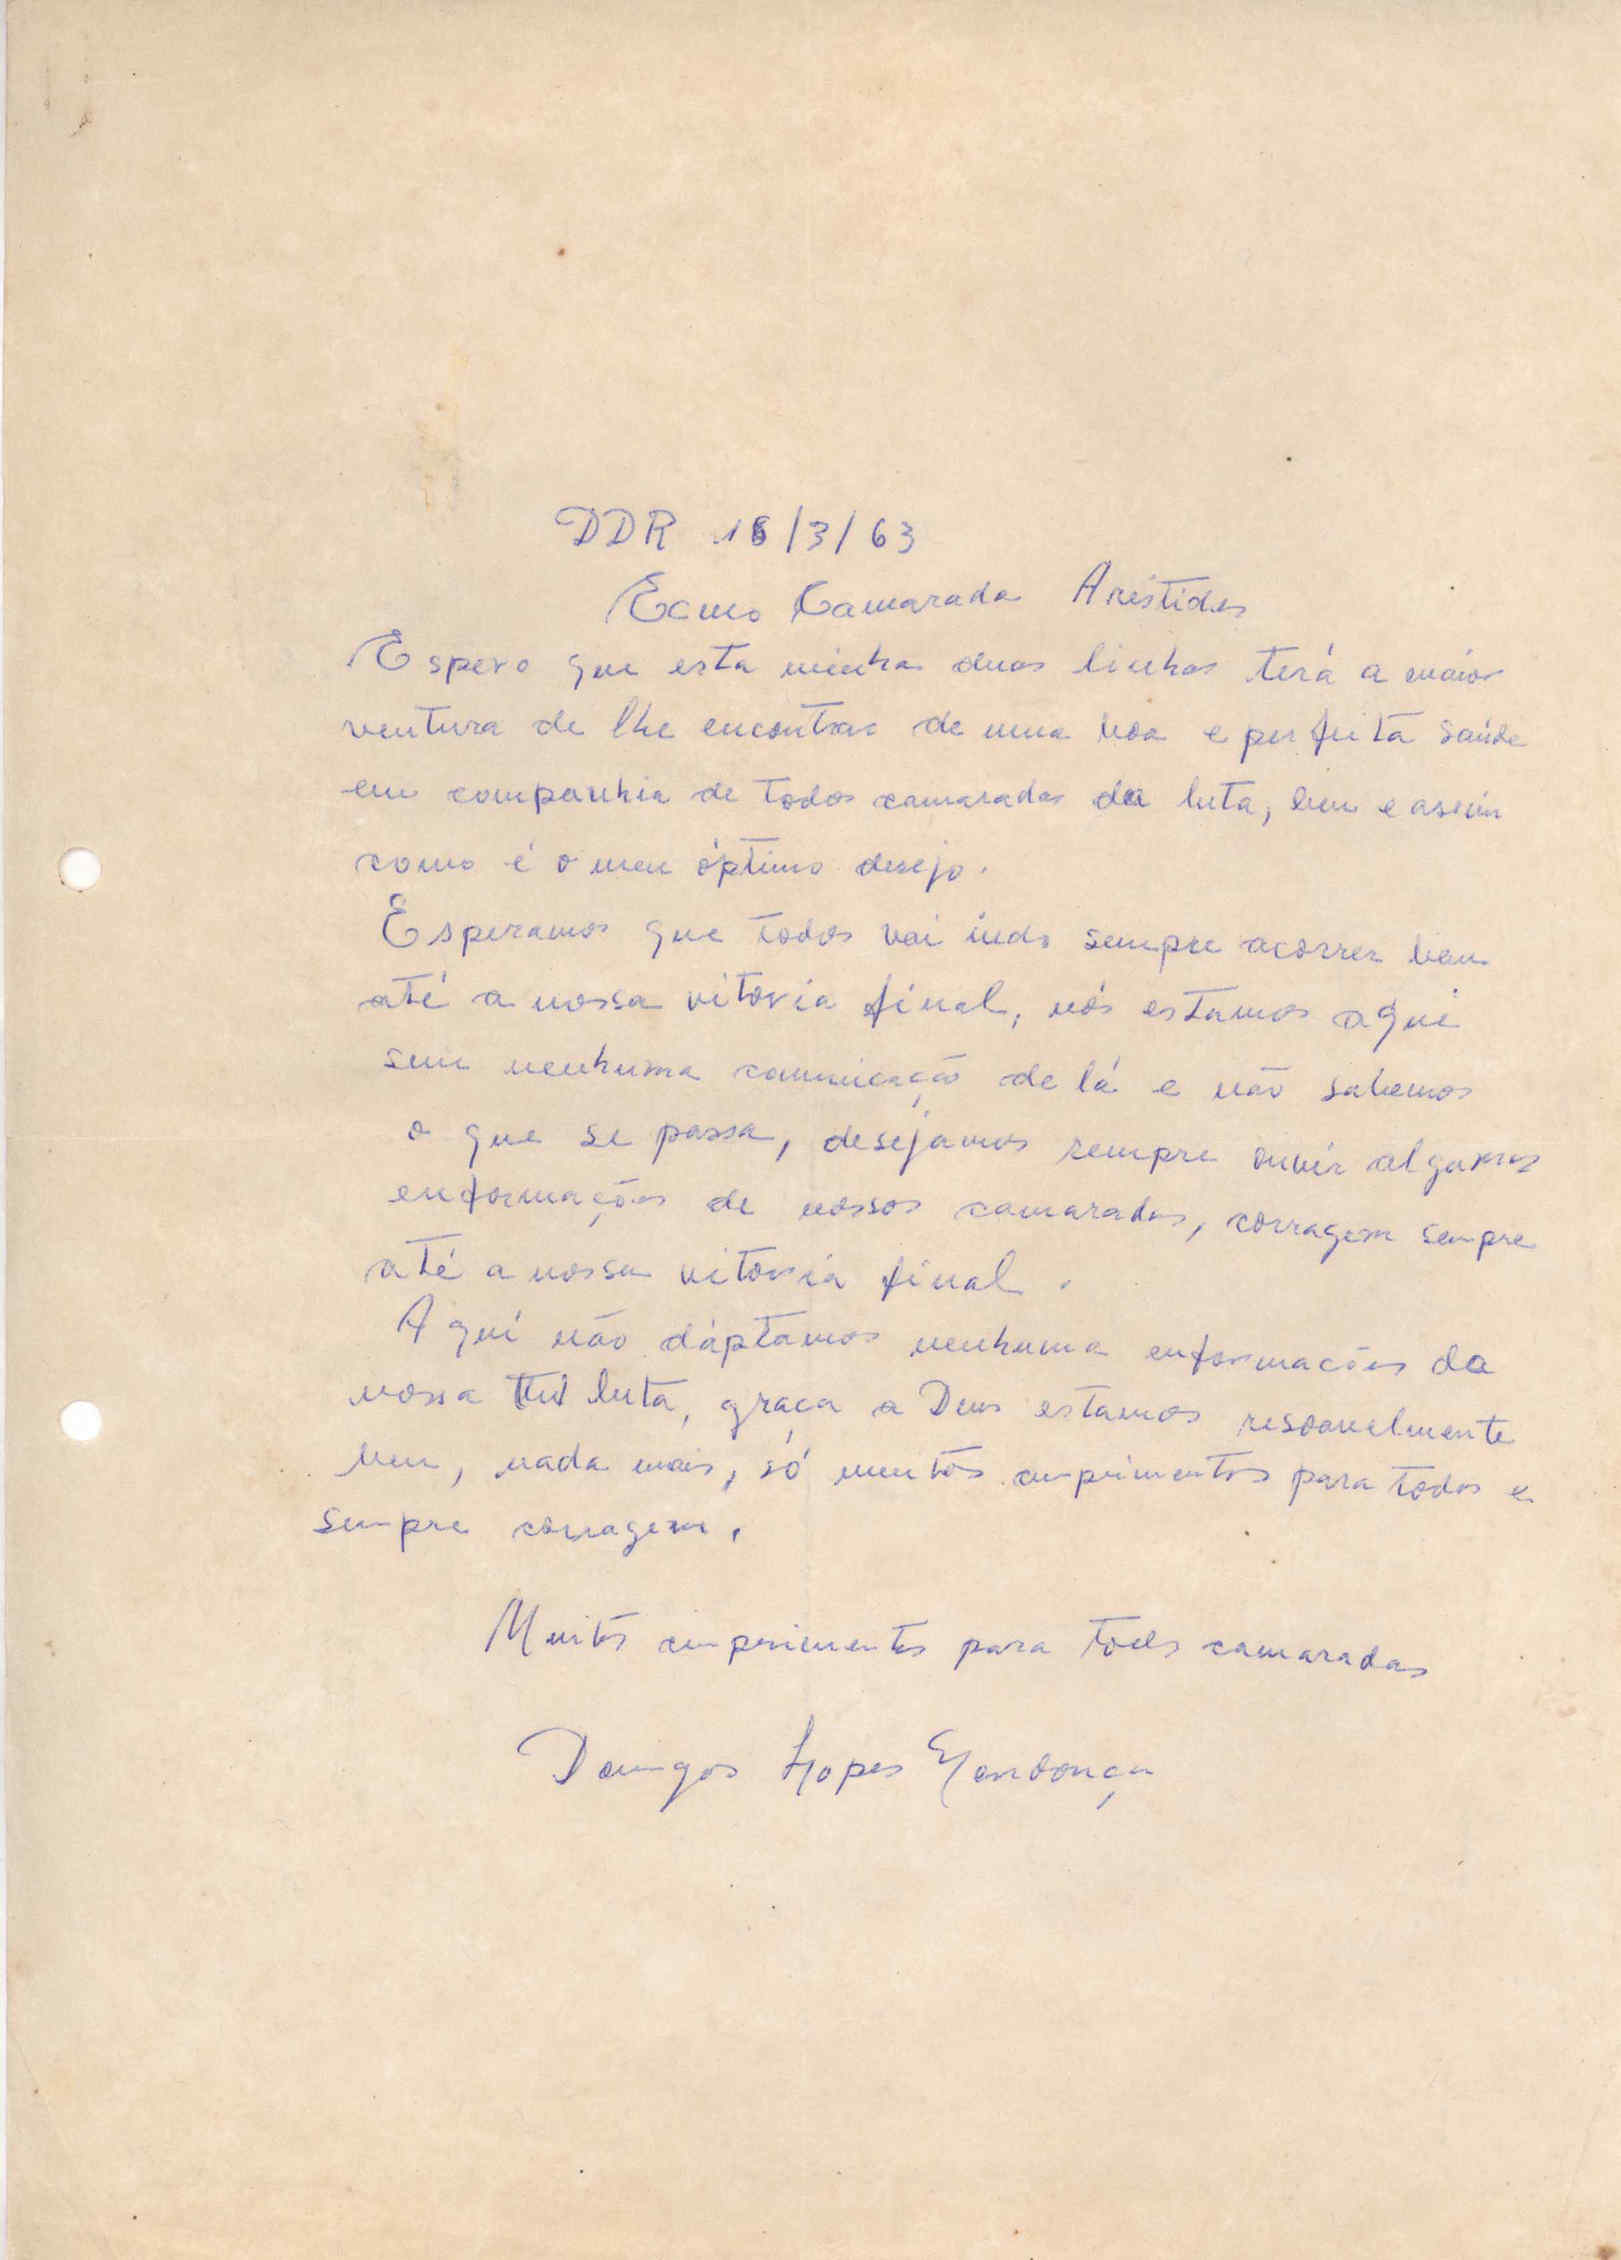 DDR 16/3/63
Ecmo Camarada Aristides
Espero que esta minhas duas linhas terá a maior
ventura de lhe encontrar de uma boa e perfeita saúde
em companhia de todos camaradas da luta, bem e assim
como é o meu óptimo desejo.
Esperamos que todos vai indo sempre acorrer bem
até a nossa vitoria final, nós estamos aqui
sem nenhuma comunicação de lá e não sabemos
o que se passa, desejamos sempre ouvir algumas
enformações de nossos camaradas, corragem sempre
até a nossa vitoria final.
Aqui não dáptamos nenhuma enformacões da
nossa luta, graça a Deus estamos resoavelmente
bem, nada mais, só muitos cumprimentos para todos e
sempre corragem.
Muitos cumprimentos para todos camaradas
Domingos Lopes Mendonça